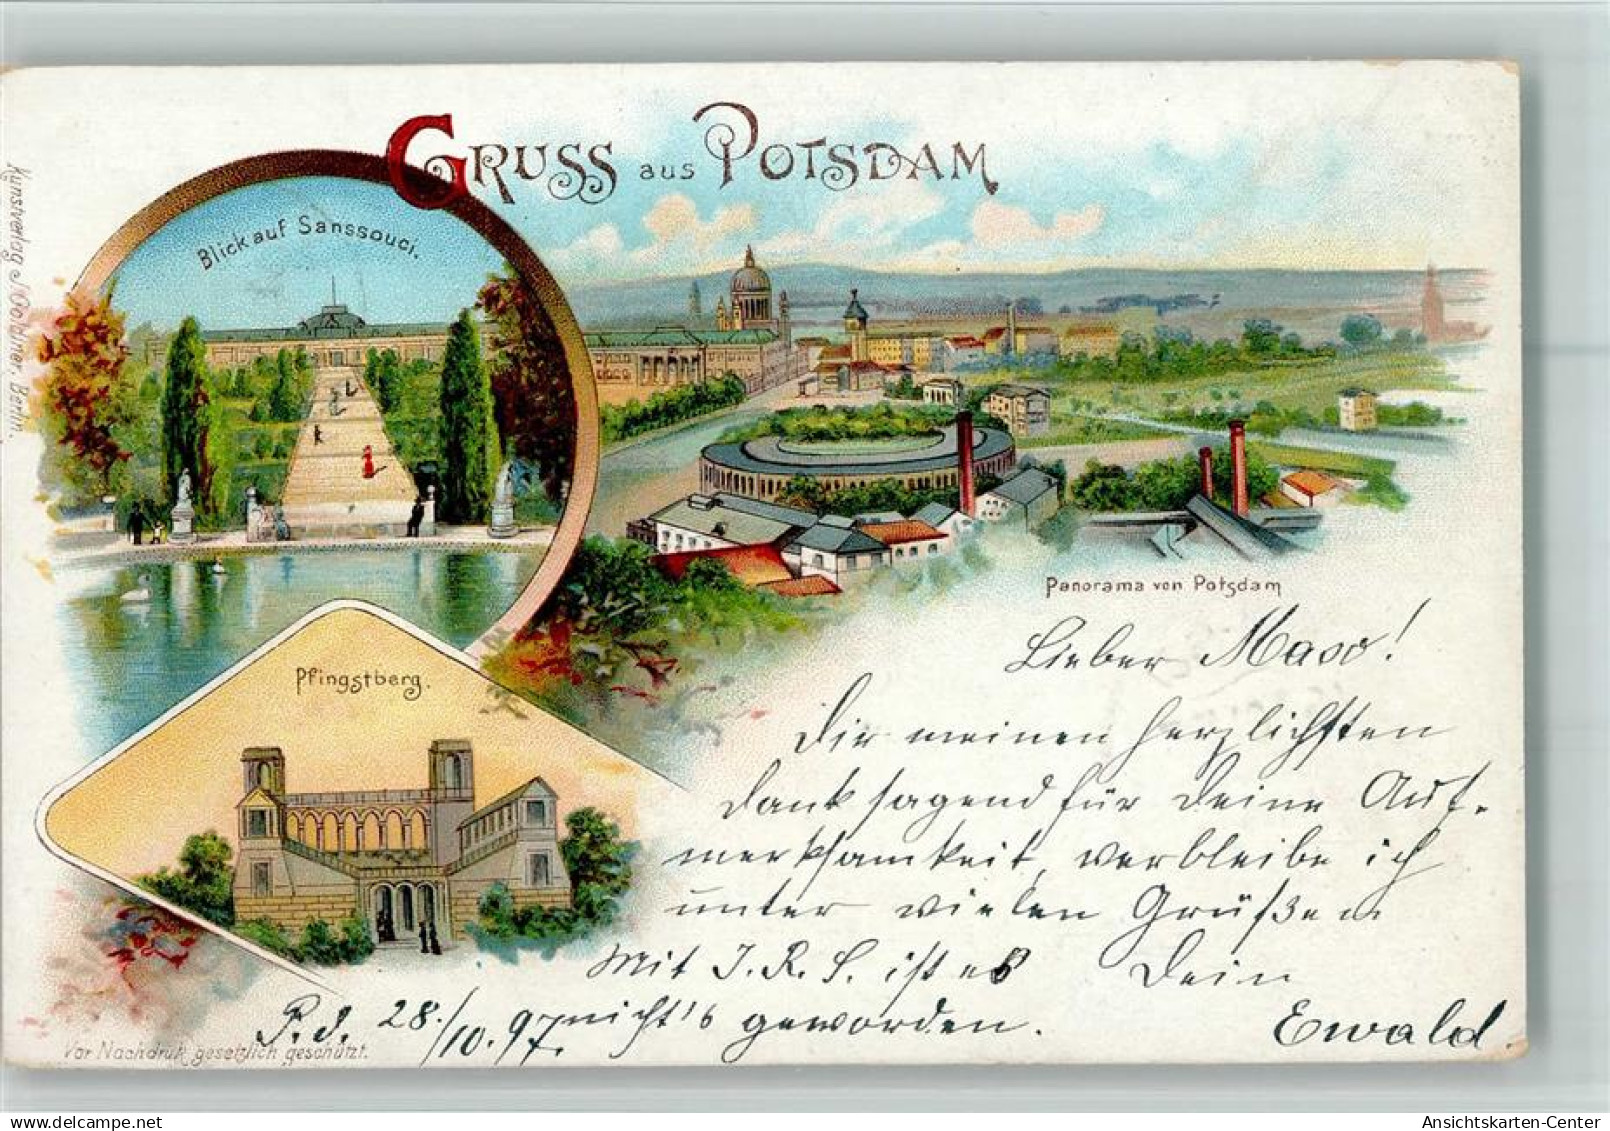 Gruss aus Potsdam
Blick auf Sanssouci.
Kunstverlag J. Goldiner, Berlin.
Panorama von Potsdam
Pfingstberg.
Lieber
Dir meinen herzlichsten
Dank sagend für Deine Auf-
merksamkeit, verbleibe ich
unter vielen Grüßen
Mit J. R. S. ist es Dein
P. d. 28./10.97. nicht's geworden. Ewald.
Vor Nachdruk gesetzlich geschützt.
AnsichtsKarten-Center
delcampe.net